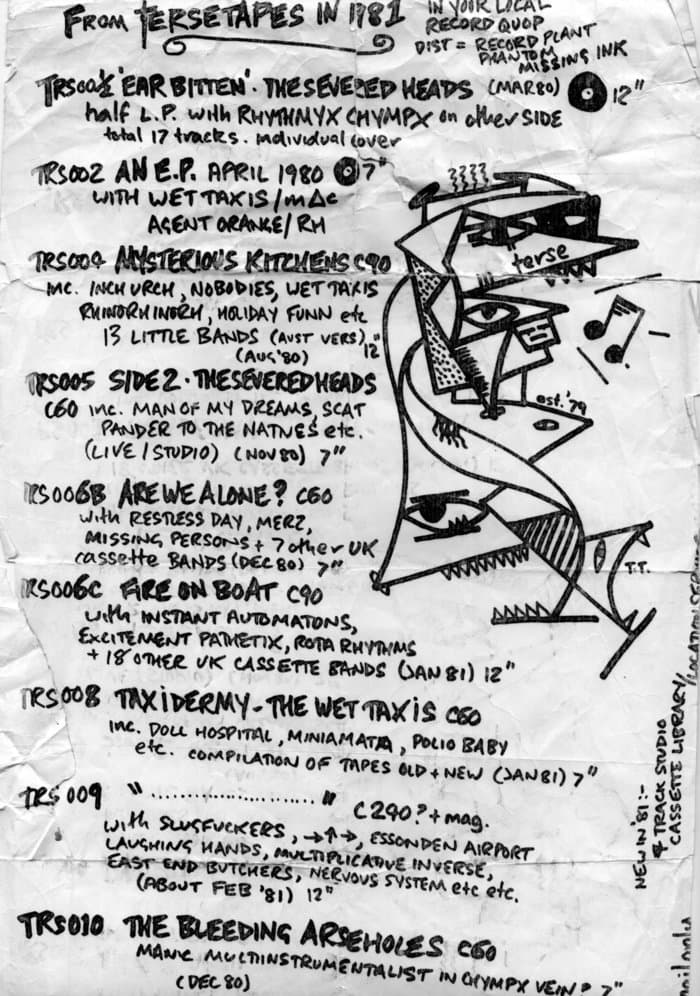 FROM TERSETAPES IN 1981
IN YOUR LOCAL
RECORD QUOP
DIST = RECORD PLANT
PHANTOM
MISSING INK
TRS00½ 'EAR BITTEN' · THESEVERED HEADS (MAR80) 12"
half L.P. with RHYTHMYX CHYMPX on other SIDE
total 17 tracks. individual cover
TRS002 AN E.P. APRIL 1980 7"
WITH WET TAXIS / M∆C
AGENT ORANGE / RH
TRS004 MYSTERIOUS KITCHENS C90
inc. INCHURCH, NOBODIES, WET TAXIS
RHINORHINORH, HOLIDAY FUNN etc
13 LITTLE BANDS (AUST VERS)
(AUG '80) 12"
TRS005 SIDE 2 · THESEVEREDHEADS
C60 inc. MAN OF MY DREAMS, SCAT
PANDER TO THE NATNES etc.
(LIVE / STUDIO) (NOV 80) 7"
TRS006B ARE WE ALONE? C60
with RESTLESS DAY, MERZ,
MISSING PERSONS + 7 other UK
cassette BANDS (DEC 80) 7"
TRS006C FIRE ON BOAT C90
with INSTANT AUTOMATONS,
EXCITEMENT PATHETIX, ROTA RHYTHMS
+ 18 OTHER UK CASSETTE BANDS (JAN 81) 12"
TRS008 TAXIDERMY - THE WET TAXIS C60
inc. DOLL HOSPITAL, MINIAMATA, POLIO BABY
etc. COMPILATION OF TAPES OLD + NEW (JAN 81) 7"
TRS 009 " .......................... " C240? + mag.
with SLUGFUCKERS, →↑→, ESSONDEN AIRPORT
LAUGHING HANDS, MULTIPLICATIVE INVERSE,
EAST END BUTCHERS, NERVOUS SYSTEM etc etc.
(ABOUT FEB '81) 12"
TRS010 THE BLEEDING ARSEHOLES C60
MANIC MULTIINSTRUMENTALIST IN CHYMPX VEIN? 7"
(DEC 80)
terse
est. '79
T.T.
NEW IN '81:-
4 TRACK STUDIO
CASSETTE LIBRARY/